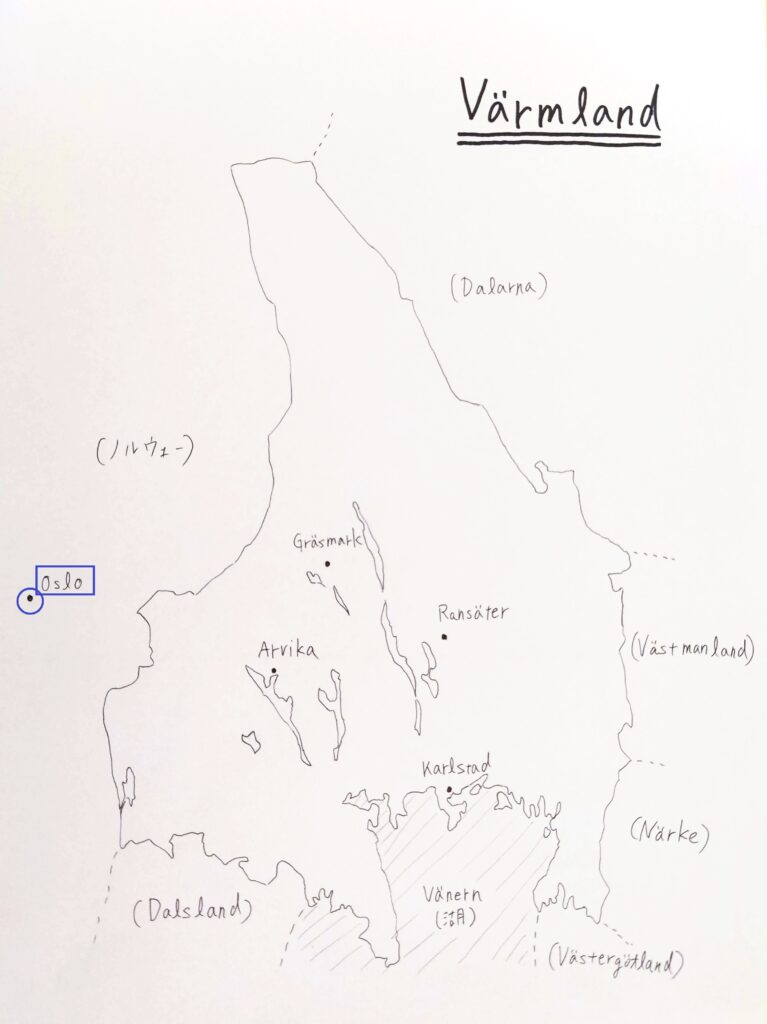 Värmland
(Dalarna)
(ノルウェー)
Gräsmark
Oslo
Ransäter
Arvika
(Västmanland)
Karlstad
(Närke)
Vänern
(湖)
(Dalsland)
(Västergötland)